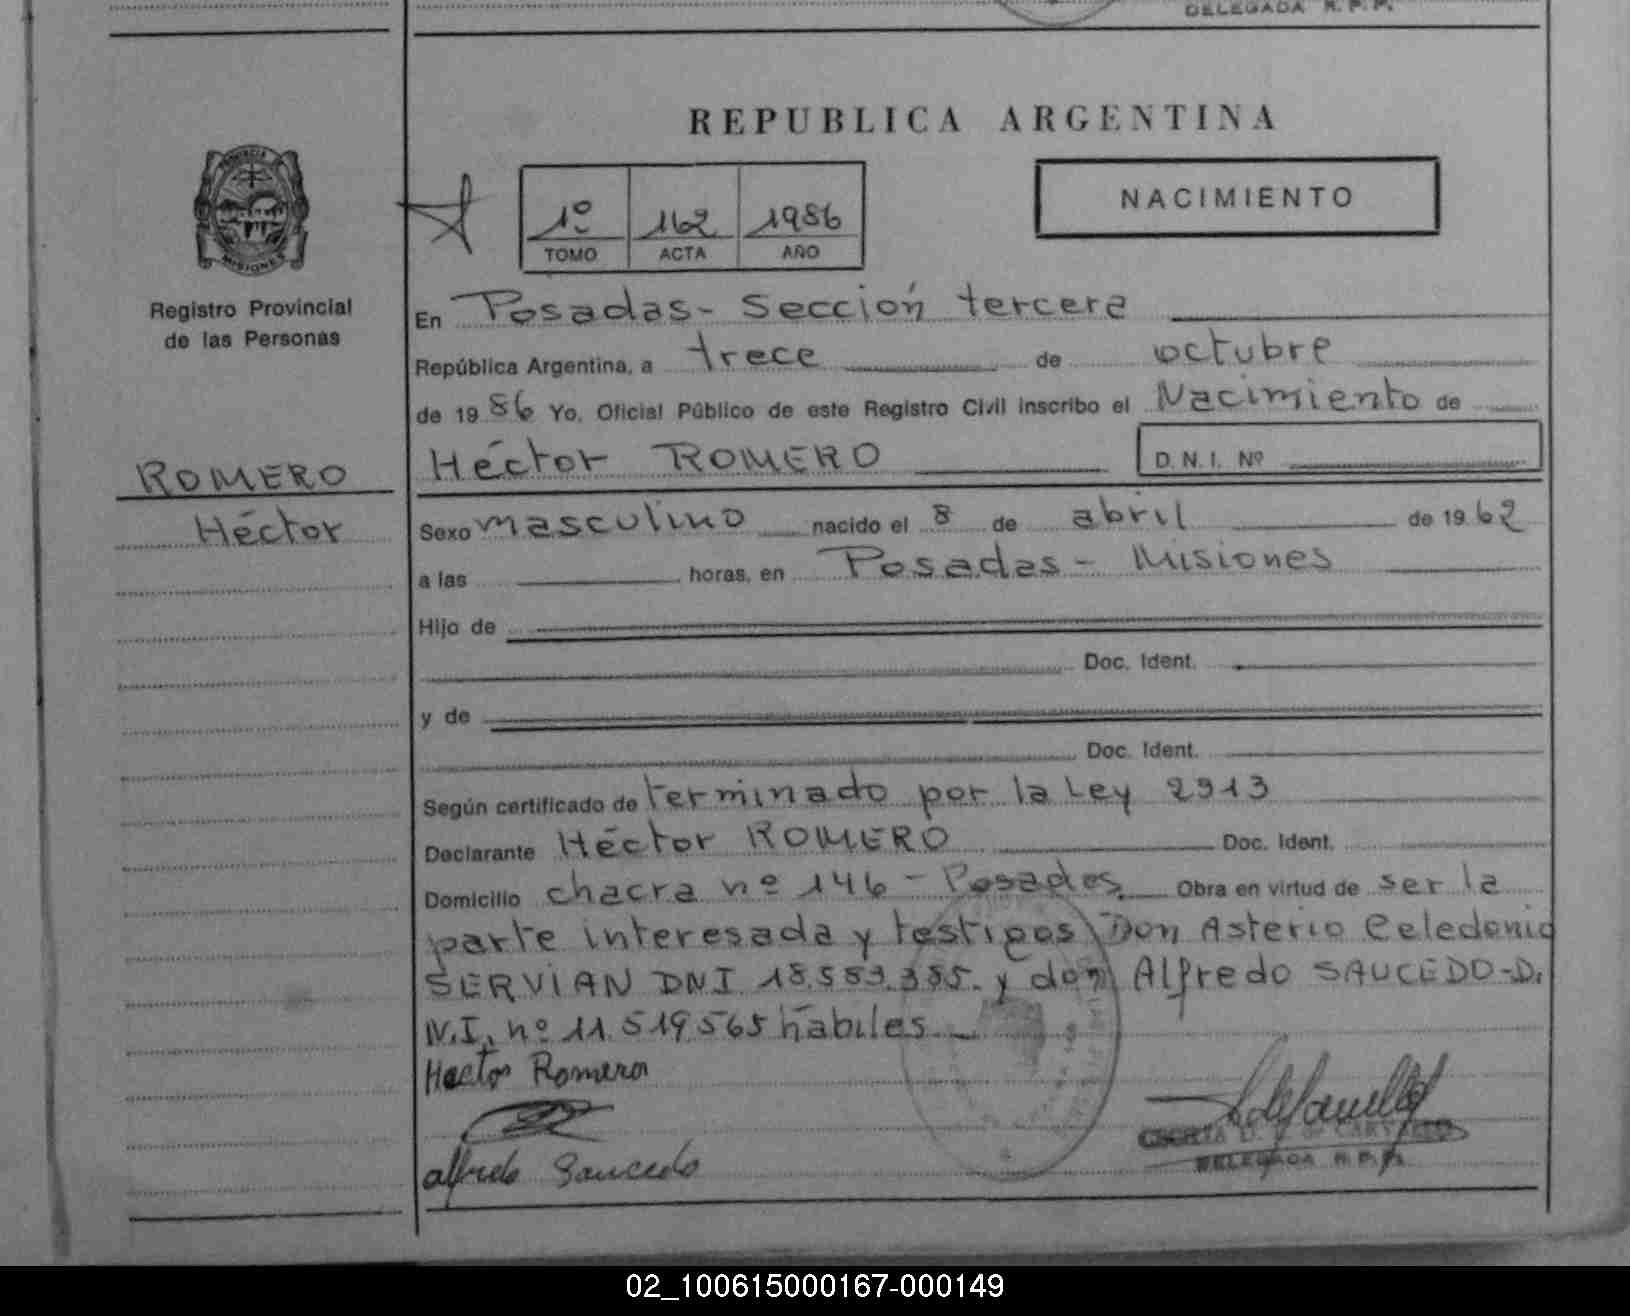 DELEGADA R.P.P.
REPUBLICA ARGENTINA
PROVINCIA
MISIONES
1º 162 1986
TOMO ACTA AÑO
NACIMIENTO
Registro Provincial
de las Personas
En Posadas - Sección tercera
República Argentina, a trece de octubre
de 1986 Yo, Oficial Público de este Registro Civil inscribo el Nacimiento de
Héctor ROMERO D.N.I. Nº
ROMERO
Héctor
Sexo masculino nacido el 8 de abril de 1962
a las horas, en Posadas - Misiones
Hijo de
Doc. Ident.
y de
Doc. Ident.
Según certificado de terminado por la Ley 2913
Declarante Héctor ROMERO Doc. Ident.
Domicilio chacra nº 146 - Posadas. Obra en virtud de ser la
parte interesada y testigos Don Asterio Celedonio
SERVIAN DNI 18.583.385. y don Alfredo SAUCEDO - D.
N.I. nº 11.519.565 hábiles
Hector Romero
alfredo Saucedo
DELEGADA R.P.P.
02_100615000167-000149